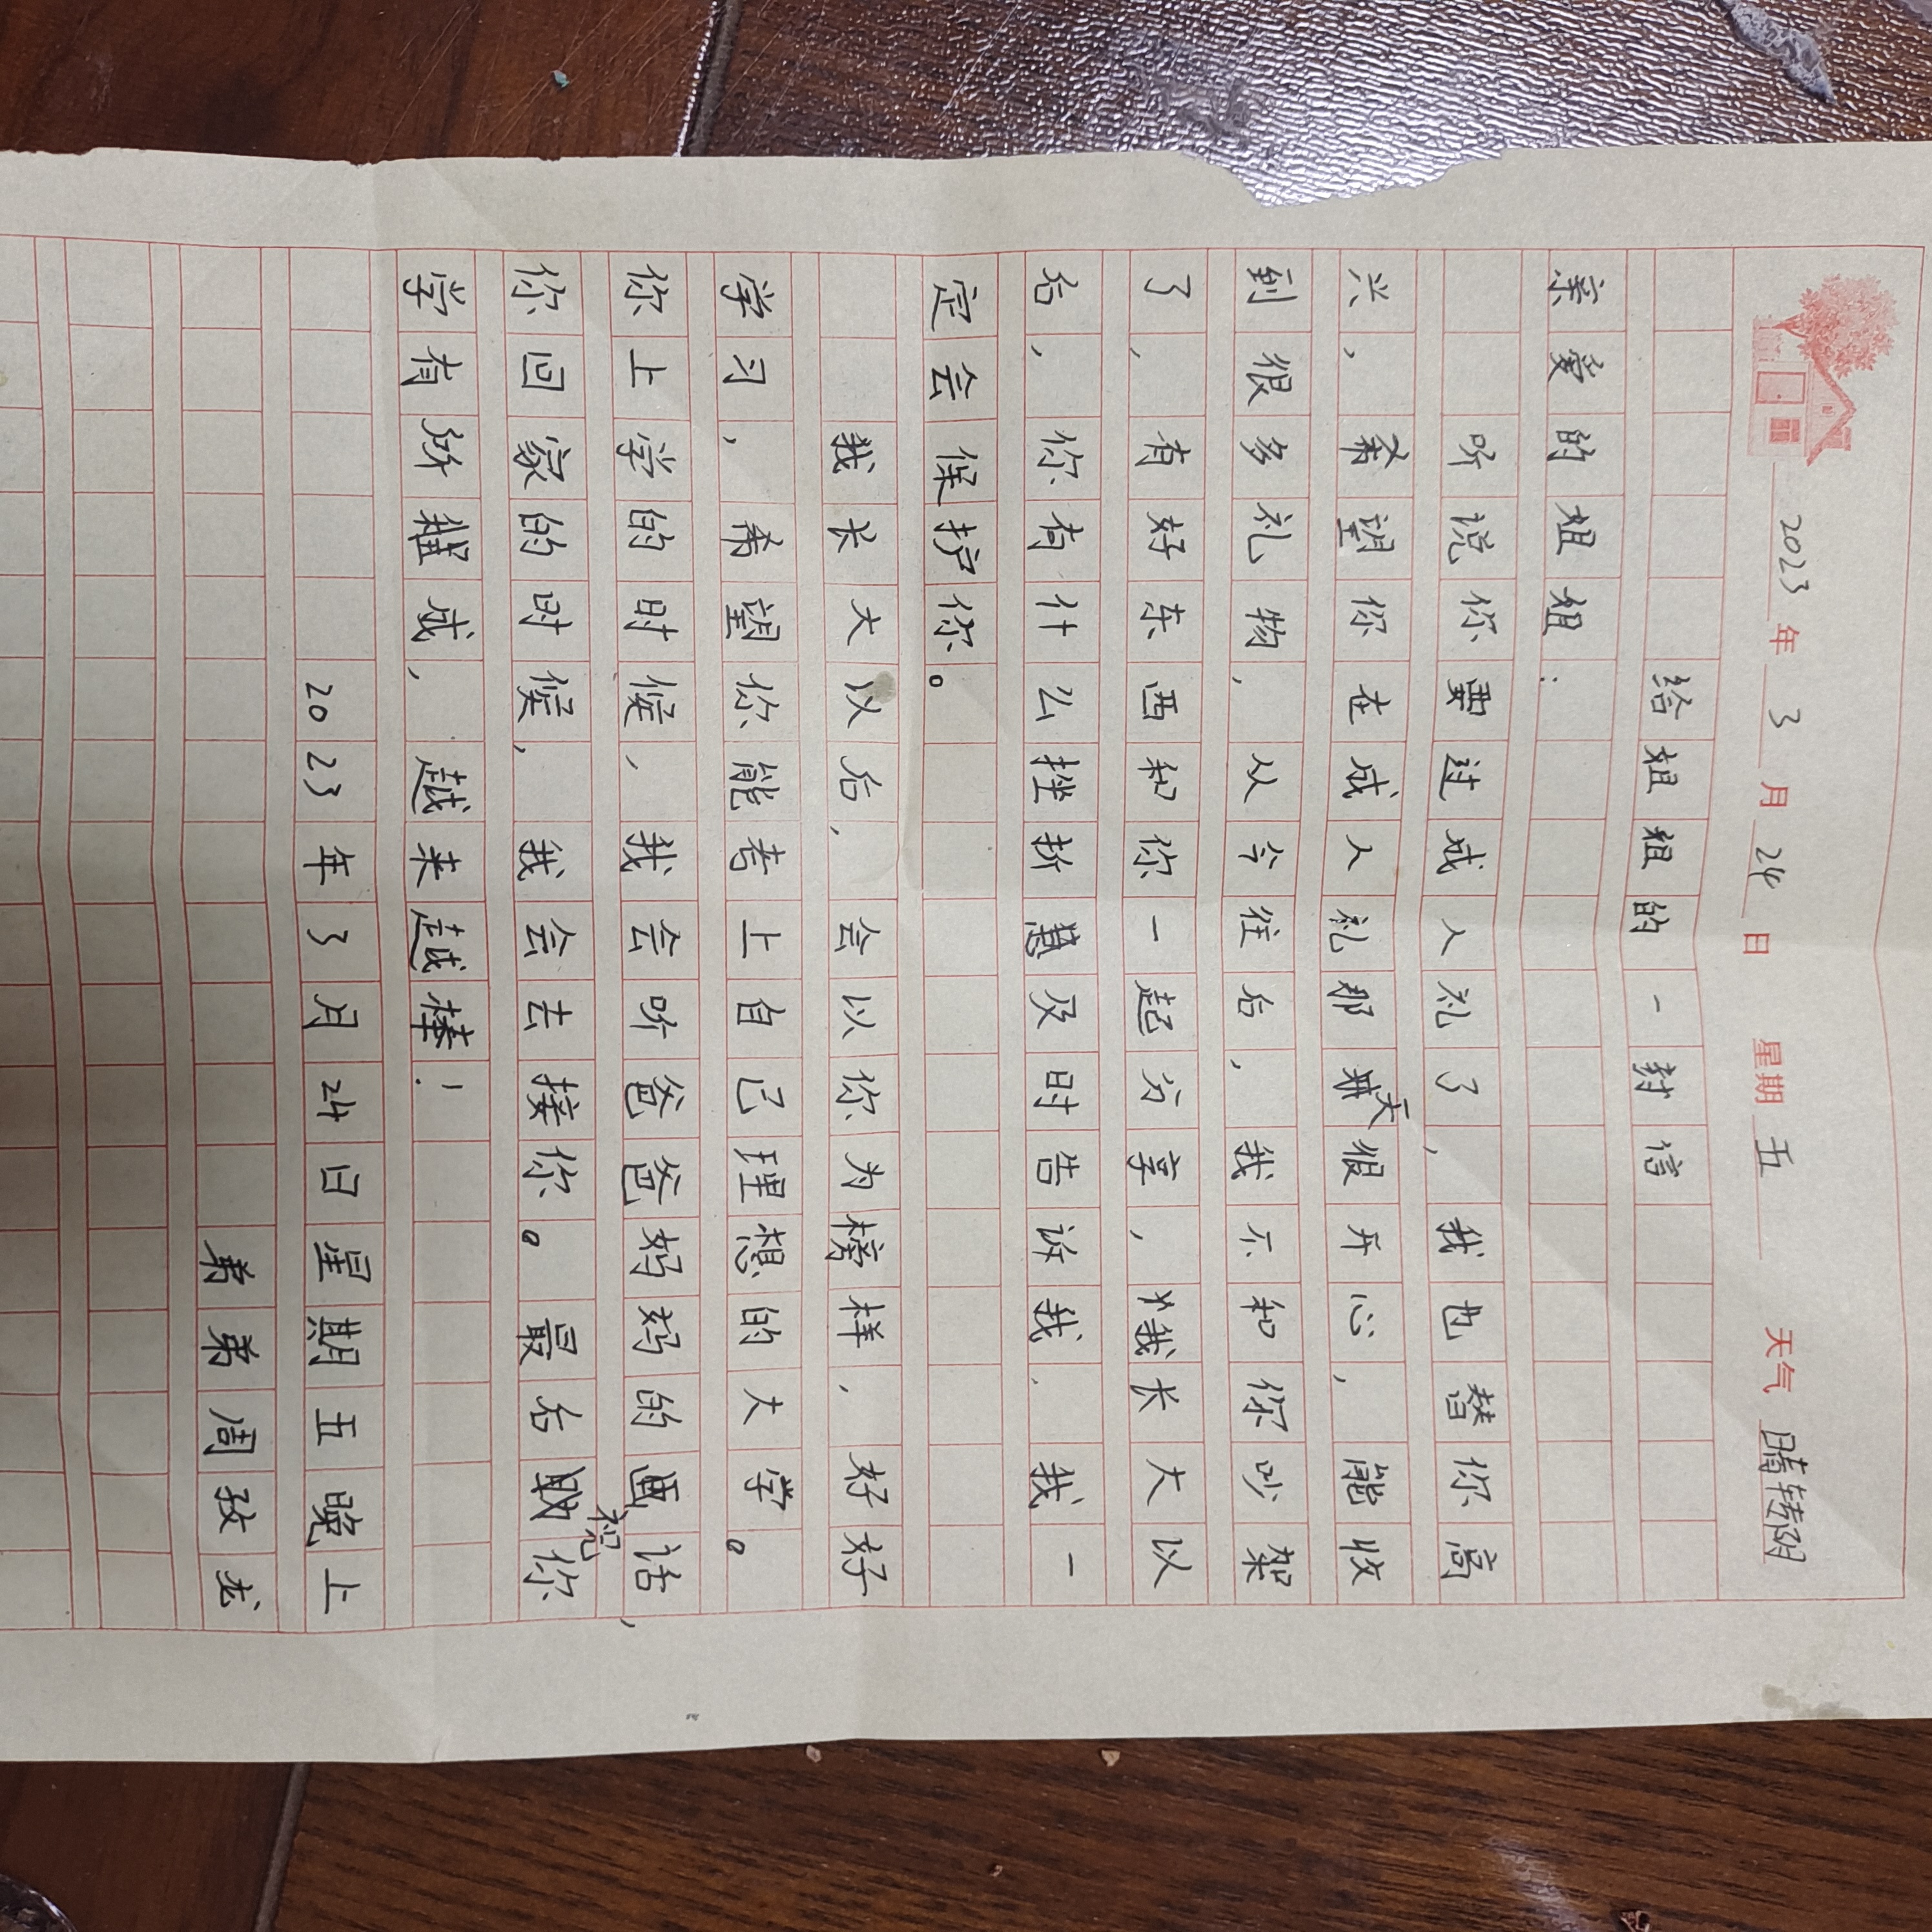 2023年3月24日 星期五 天气 晴转阴
给姐姐的一封信
亲爱的姐姐:
听说你要过成人礼了,我也替你高
兴,希望你在成人礼那天很开心,能收
到很多礼物,从今往后,我不和你吵架
了,有好东西和你一起分享,我长大以
后,你有什么挫折及时告诉我,我一
定会保护你。
我长大以后,会以你为榜样,好好
学习,希望你能考上自己理想的大学。
你上学的时候,我会听爸爸妈妈的话,
你回家的时候,我会去接你。最后祝你
学有所成,越来越棒!
2023年3月24日星期五晚上
弟弟周孜龙